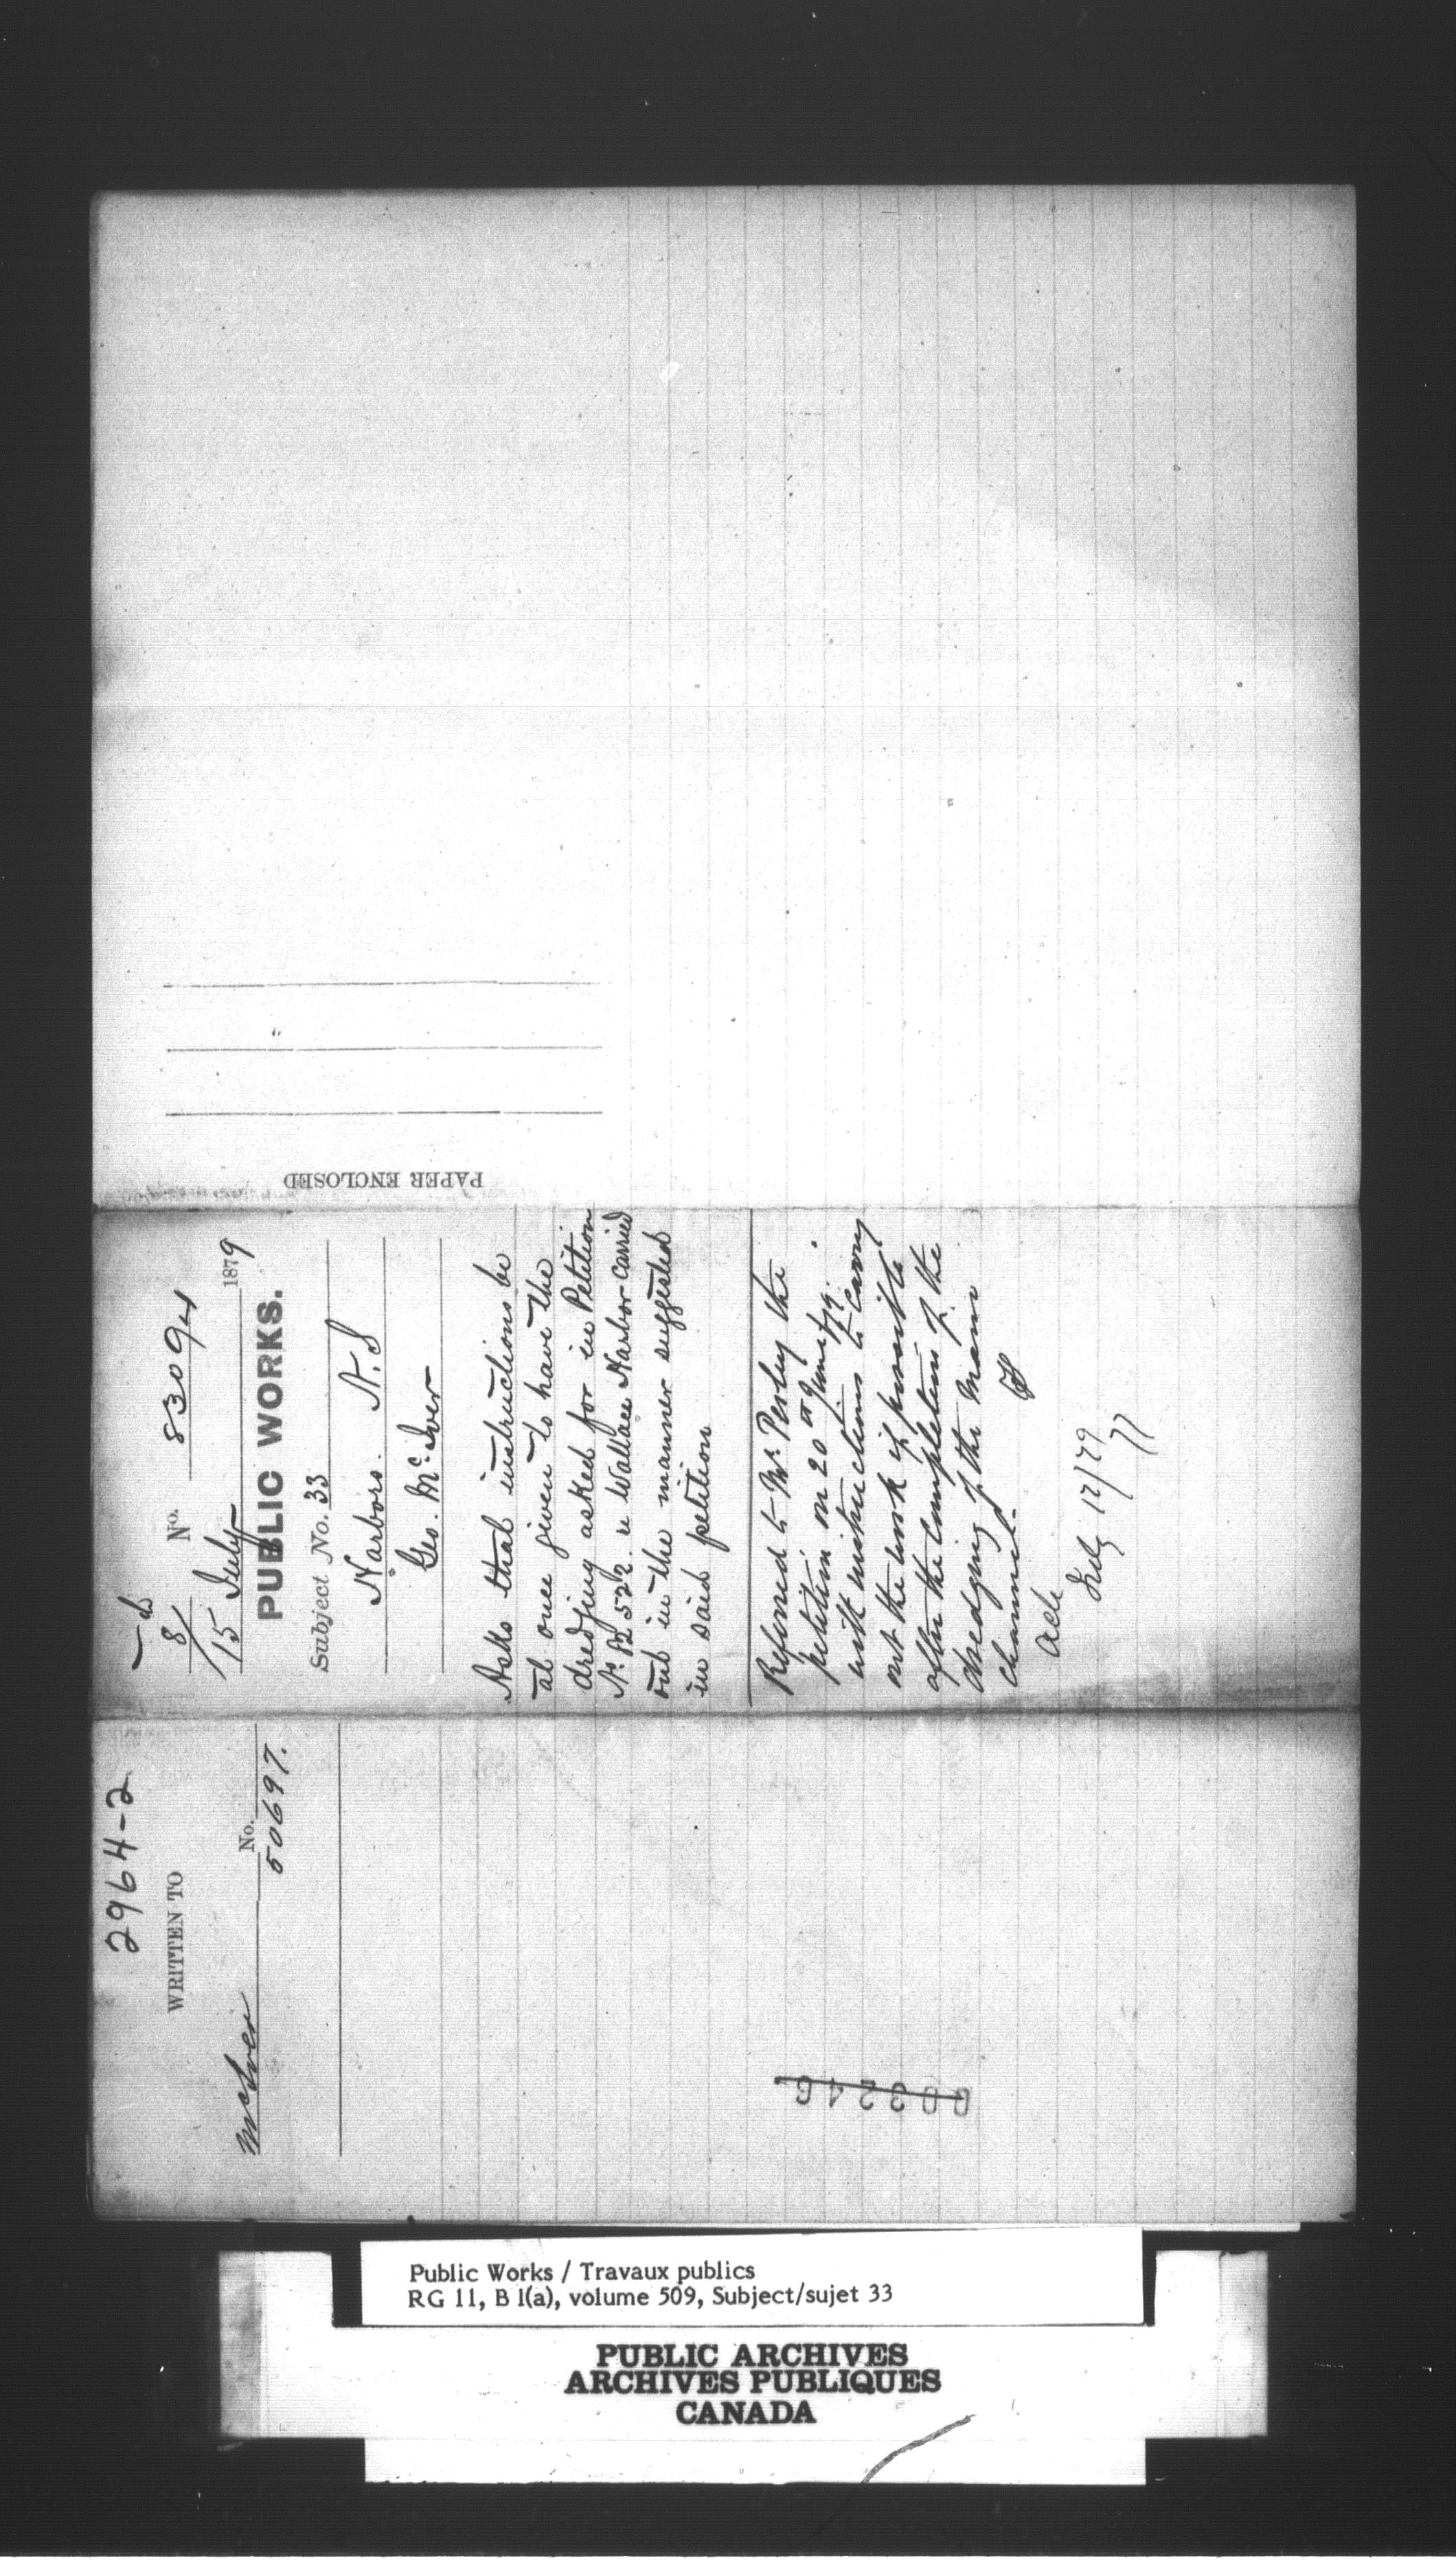 2964-2
WRITTEN TO
No.
McIver
50697.
8/
No. 83094
15 July 1879
PUBLIC WORKS.
Subject No. 33
Harbors. N.S
Geo. McIver
Asks that instructions be
at once given to have the
dredging asked for in Petition
No. 82522 Wallace Harbor carried
out in the manner suggested
in said petition
Referred to Mr. Perley the
petition on 20th June /79.
with instructions to carry
out the work if possible
after the completion of the
dredging of the main
channel.
Ack
July 17/79
PAPER ENCLOSED
Public Works / Travaux publics
RG 11, B 1(a), volume 509, Subject/sujet 33
PUBLIC ARCHIVES
ARCHIVES PUBLIQUES
CANADA